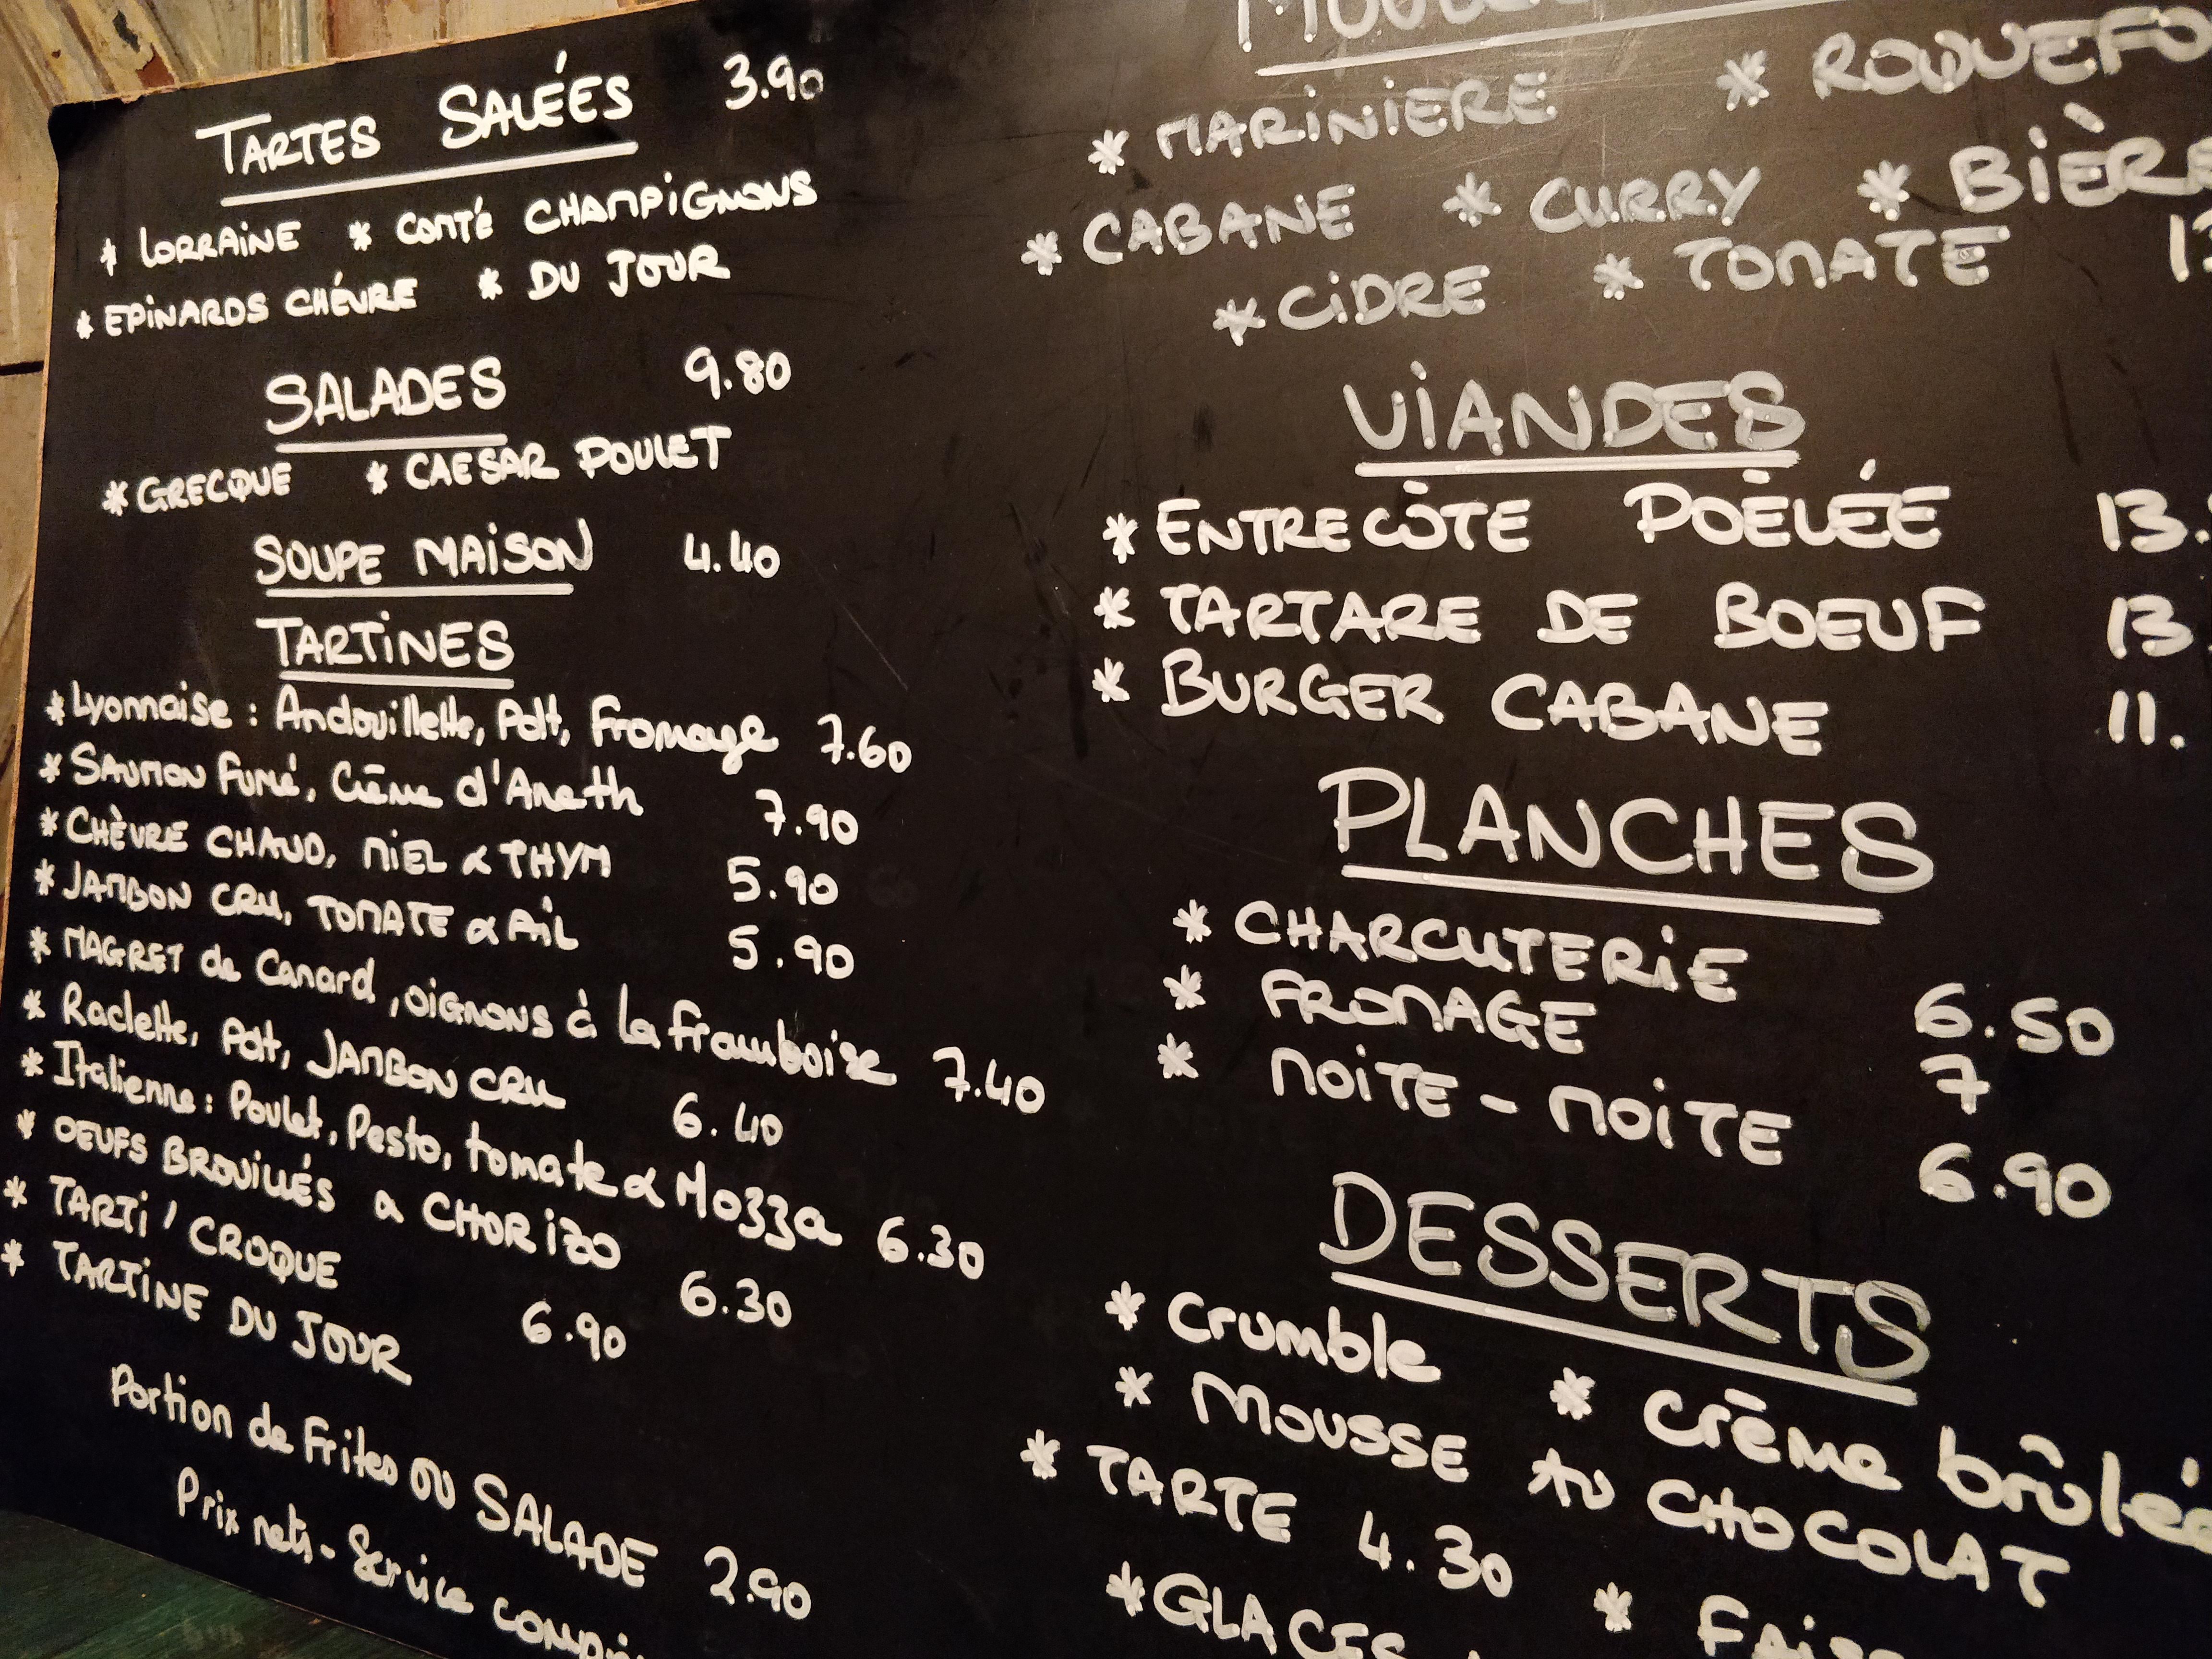 TARTES SALÉES 3.90
* LORRAINE * COMTÉ CHAMPIGNONS
* EPINARDS CHÉVRE * DU JOUR
SALADES 9.80
* GRECQUE * CAESAR POULET
SOUPE MAISON 4.40
TARTINES
* Lyonnaise : Andouillette, Pdt, Fromage 7.60
* SAUMON Fumé, Crème d'Aneth 7.90
* CHÈVRE CHAUD, MIEL & THYM 5.90
* JAMBON CRU, TOMATE & AIL 5.90
* MAGRET de Canard, OIGNONS à la framboise 7.40
* Raclette, Pdt, JAMBON CRU 6.40
* Italienne : Poulet, Pesto, tomate & Mozza 6.30
* OEUFS BROUILLÉS & CHORIZO 6.30
* TARTI' CROQUE 6.90
* TARTINE DU JOUR
Portion de Frites OU SALADE 2.90
Prix nets - Service
* MARINIERE * ROQUEFO
* CABANE * CURRY * BIÈRE
* CIDRE * TOMATE
VIANDES
* ENTRECÔTE POÊLÉE 13.
* TARTARE DE BOEUF 13.
* BURGER CABANE 11.
PLANCHES
* CHARCUTERIE 6.50
* FROMAGE 7
* MOITE - MOITE 6.90
DESSERTS
* Crumble * Crème brûlée
* MOUSSE AU CHOCOLAT
* TARTE 4.30 * FAISS
* GLACES